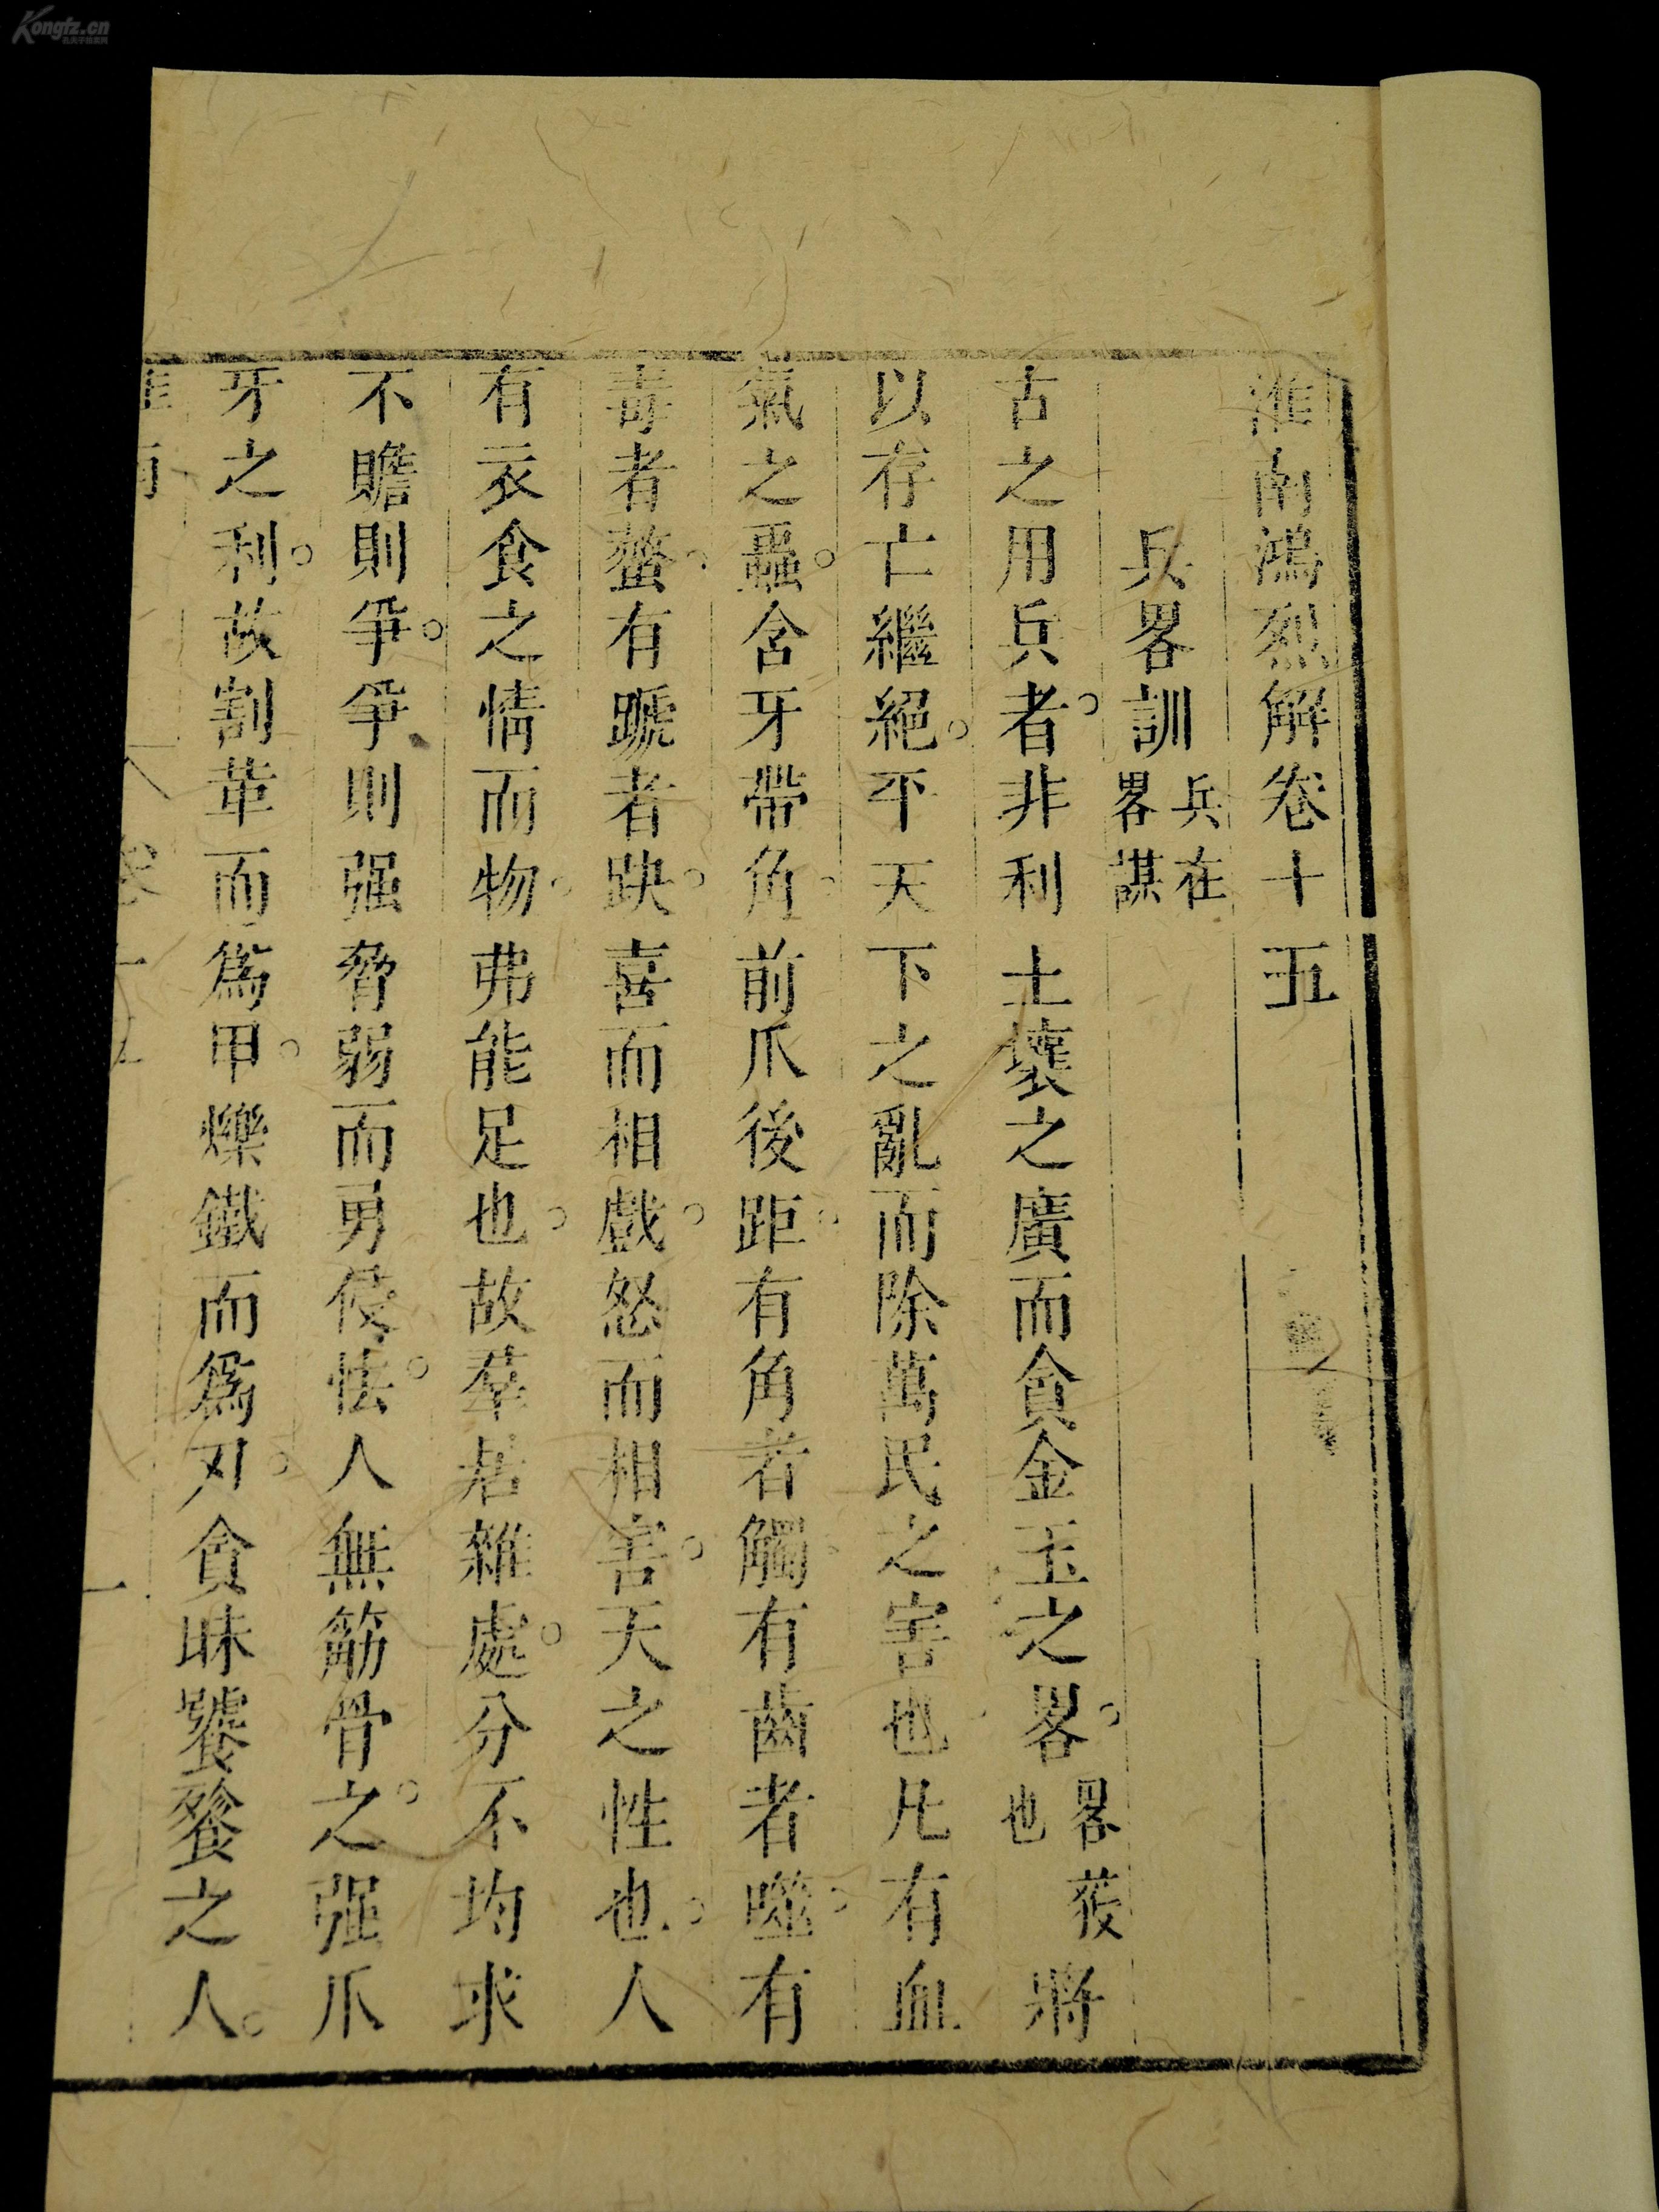 Kongfz.cn
淮南鴻烈解卷十五
兵畧訓兵在畧謀
古之用兵者。非利土壤之廣而貪金玉之畧。畧蒰也將
以存亡繼絕。平天下之亂而除萬民之害也凡有血
氣之蟲。含牙帶角。前爪後距。有角者觸。有齒者噬。有
毒者螫。有蹏者趹。喜而相戲。怒而相害。天之性也。人
有衣食之情而物。弗能足也。故羣居雜處。分不均求
不贍則爭。爭則强脅弱而勇侵怯。人無筋骨。之强爪
牙之利。故割革而爲甲。爍鐵而爲刃。貪昧饕餮之人。